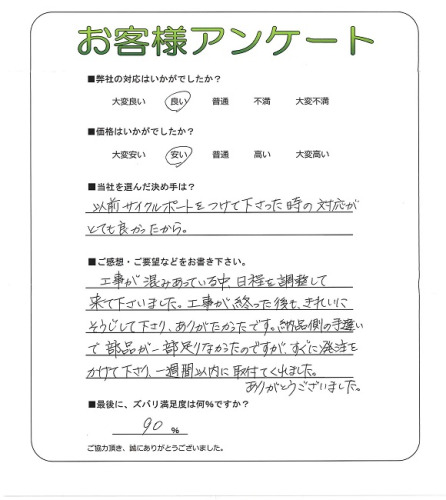 お客様アンケート
■弊社の対応はいかがでしたか？
大変良い 良い 普通 不満 大変不満
■価格はいかがでしたか？
大変安い 安い 普通 高い 大変高い
■当社を選んだ決め手は？
以前サイクルポートをつけて下さった時の対応が
とても良かったから。
■ご感想・ご要望などをお書き下さい。
工事が混みあっている中、日程を調整して
来て下さいました。工事が終った後も、きれいに
そうじして下さり、ありがたかったです。納品側の手違い
で部品が一部足りなかったのですが、すぐに発注を
かけて下さり、一週間以内に取付てくれました。
ありがとうございました。
■最後に、ズバリ満足度は何％ですか？
90 %
ご協力頂き、誠にありがとうございました。